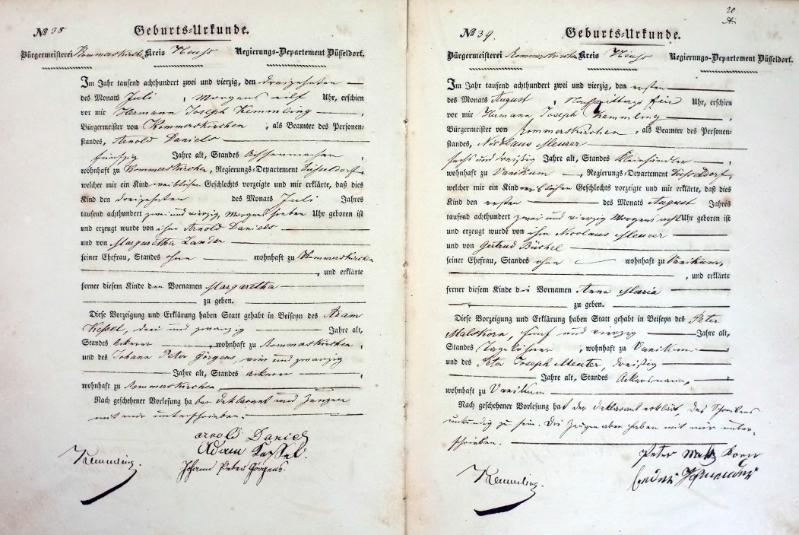 № 38
Geburts-Urkunde.
Bürgermeisterei Rommerskirchen Kreis Neuss Regierungs-Departement Düsseldorf.
Im Jahr tausend achthundert zwei und vierzig, den dreizehnten
des Monats Juli, Morgens elf Uhr, erschien
vor mir Hermann Joseph Kemmling
Bürgermeister von Rommerskirchen, als Beamter des Personen-
standes, Arnold Daniels
fünfzig Jahre alt, Standes
wohnhaft zu Rommerskirchen, Regierungs-Departement Düsseldorf,
welcher mir ein Kind weiblichen Geschlechts vorzeigte und mir erklärte, daß dies
Kind den dreizehnten des Monats Juli
tausend achthundert zwei und vierzig, Morgens sieben Uhr geboren ist
und erzeugt wurde von ihm Arnold Daniels
und von Margaretha
seiner Ehefrau, Standes ohne wohnhaft zu Rommerskirchen
, und erklärte
ferner diesem Kinde den Vornamen Margaretha
zu geben.
Diese Vorzeigung und Erklärung haben Statt gehabt in Beiseyn des Adam
drei und zwanzig Jahre alt,
Standes Ackerer, wohnhaft zu Rommerskirchen
und des Johann Peter Görgens, vier und zwanzig
Jahre alt, Standes Ackerer
wohnhaft zu Rommerskirchen
Nach geschehener Vorlesung haben Deklarant und Zeugen
mit mir unterschrieben.
Arnold Daniels
Adam
Johann Peter Görgens.
Kemmling.
20
№ 39.
Geburts-Urkunde.
Bürgermeisterei Rommerskirchen Kreis Neuss Regierungs-Departement Düsseldorf.
Im Jahr tausend achthundert zwei und vierzig, den ersten
des Monats August, Nachmittag Uhr, erschien
vor mir Hermann Joseph Kemmling
Bürgermeister von Rommerskirchen, als Beamter des Personen-
standes, Nicolaus Meurer
sechs und dreißig Jahre alt, Standes Kleinhändler
wohnhaft zu Vanikum, Regierungs-Departement Düsseldorf,
welcher mir ein Kind weiblichen Geschlechts vorzeigte und mir erklärte, daß dies
Kind den ersten des Monats August Jahres
tausend achthundert zwei und vierzig Morgens Uhr geboren ist
und erzeugt wurde von ihm Nicolaus Meurer
und von Gertrud
seiner Ehefrau, Standes ohne wohnhaft zu Vanikum
, und erklärte
ferner diesem Kinde den Vornamen Anna Maria
zu geben.
Diese Vorzeigung und Erklärung haben Statt gehabt in Beiseyn des Peter
fünf und vierzig Jahre alt,
Standes Tagelöhner, wohnhaft zu Vanikum
und des Peter Joseph dreißig
Jahre alt, Standes Ackersmann,
wohnhaft zu Vanikum
Nach geschehener Vorlesung hat der Deklarant erklärt, des Schreibens
unkundig zu sein. Die Zeugen aber haben mit mir unter-
schrieben.
Peter
Kemmling.